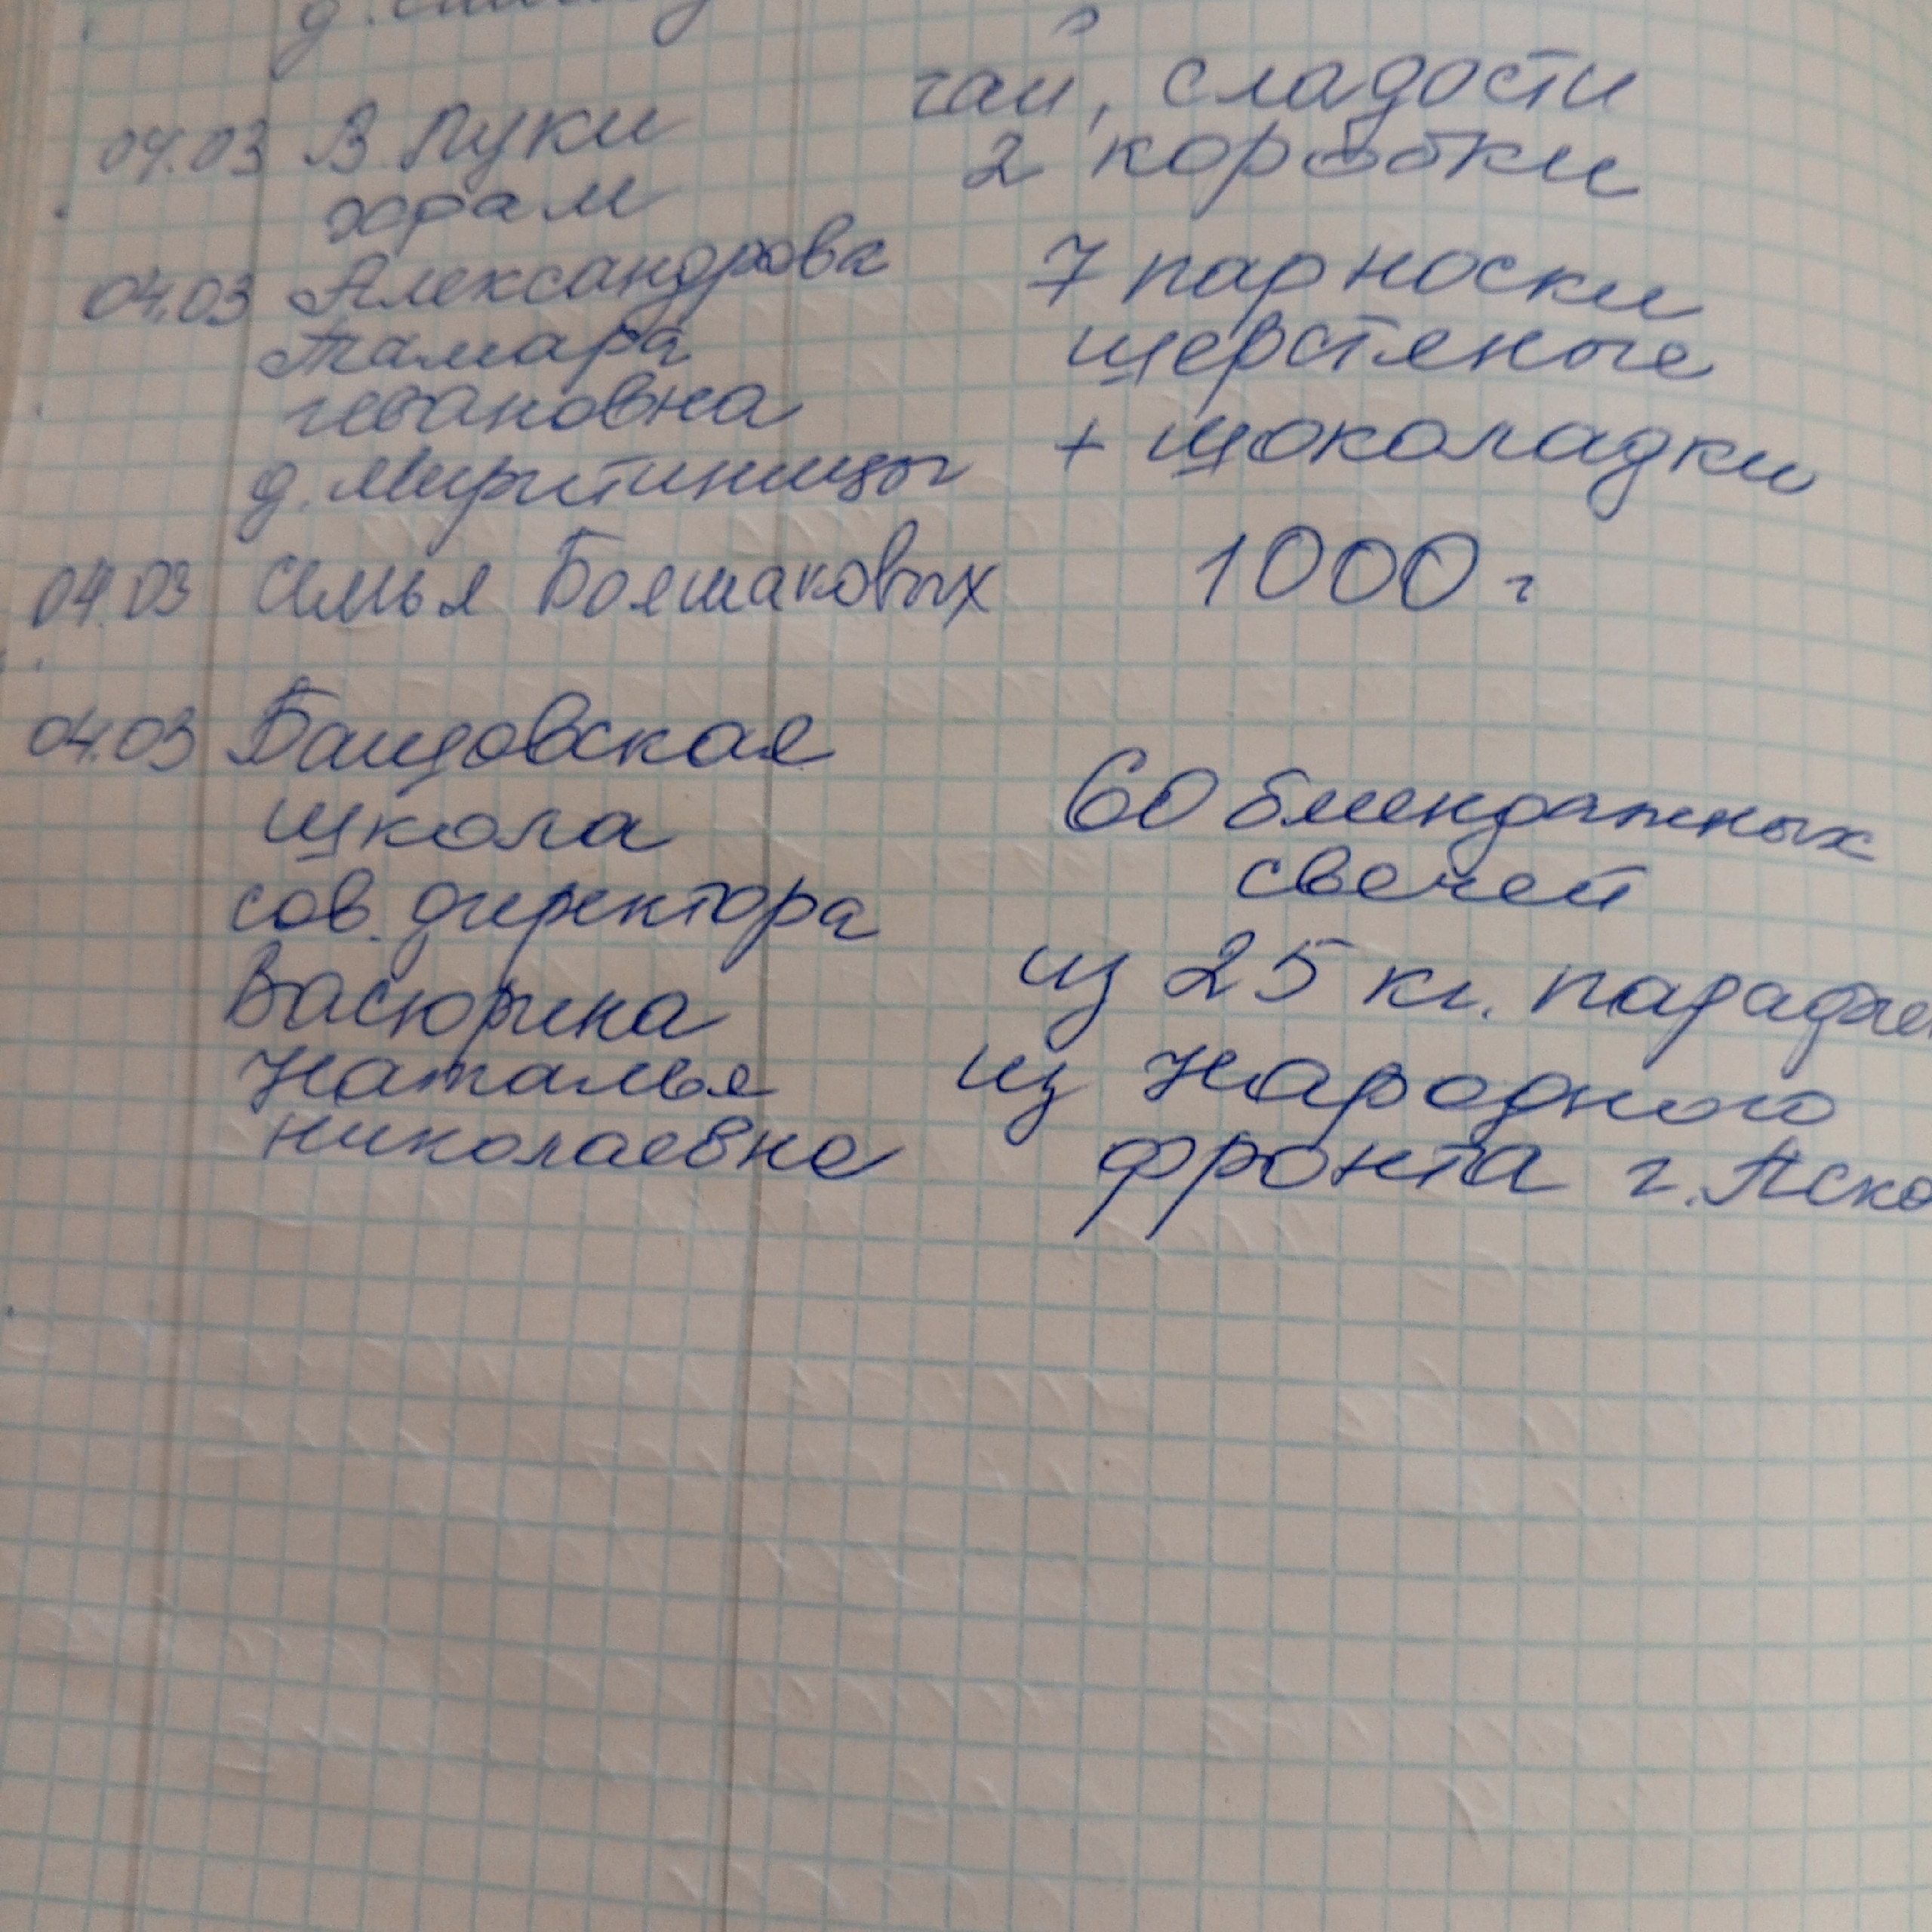 чай, сладости
04.03 В. Луки
2 коробки
храм
04.03 Александрова
7 пар носки
Тамара
шерстяные
Ивановна
+ шоколадки
д. Миритиницы
04.03 Семья Большаковых 1000 г
04.03 Башовская
школа
60 блиндажных
свечей
сов. директора
из 25 кг. парафи
Васюрина
из Народного
Наталья
фронта г. Пско
Николаевна